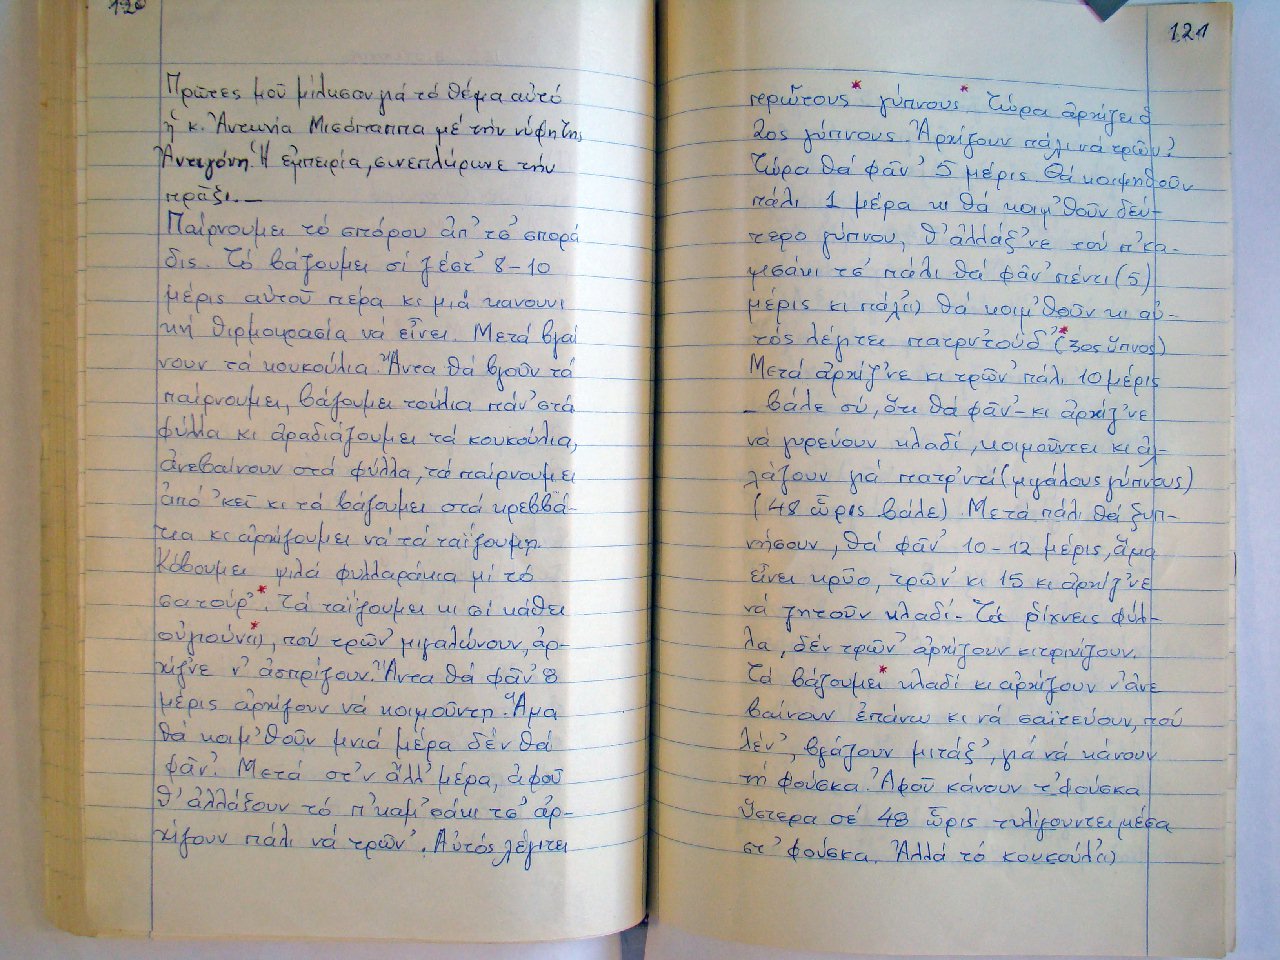 120
Πρῶτες μοῦ μίλησαν γιά τό θέμα αὐτό
ἡ κ. Ἀντωνία Μισόπαππα μέ τήν νύφη της
Ἀντιγόνη. Ἡ ἐμπειρία, συνεπλήρωνε τήν
πρᾶξι.—
Παίρνουμει τό σπόρου ἀπ' τσ' σπορά
δις. Τό βάζουμει σί ζέστ' 8-10
μέρις αὐτοῦ πέρα κι μιά κανουνι
κή θιρμοκρασία νά εἶνει. Μετά βγαί
νουν τά κουκούλια. Ἄντα θά βγοῦν τά
παίρνουμει, βάζουμει τούλια πάν' στά
φύλλα κι ἀραδιάζουμει τά κουκούλια,
ἀνεβαίνουν στά φύλλα, τά παίρνουμει
ἀπό 'κεῖ κι τά βάζουμει στά κρεββά-
τια κι ἀρχίζουμει νά τά ταΐζουμη.
Κόβουμει ψιλά φυλλαράκια μί τό
σατούρ'*. Τά ταΐζουμει κι σί κάθει
οὑγιούνι*), πού τρῶν' μιγαλώνουν, ἀρ-
χίζ'νε ν' ἀσπρίζουν. Ἄντα θά φᾶν' 8
μέρις ἀρχίζουν νά κοιμοῦντη. Ἅμα
θά κοιμ'θοῦν μνιά μέρα δέν θά
φᾶν'. Μετά στ'ν ἄλλ' μέρα, ἀφοῦ
θ' ἀλλάξουν τό π'καμ'σάκι τσ' ἀρ-
χίζουν πάλι νά τρῶν'. Αὐτός λέγιτει
121
περῶτους* γύπνους* Τώρα ἀρχίζει ὁ
2ος γύπνους. Ἀρχίζουν πάλι νά τρῶν'.
Τώρα θά φᾶν' 5 μέρις. Θά κοιμηθοῦν
πάλι 1 μέρα κι θά κοιμ'θοῦν δεύ-
τερο γύπνου, θ' ἀλλάξ'νε τού π'κα-
μισάκι τσ' πάλι θά φᾶν' πέντι (5)
μέρις κι πάλ'ι) θά κοιμ'θοῦν κι αὐ-
τός λέγιτει πατρντούδ'* (3ος ὕπνος)
Μετά ἀρχίζ'νε κι τρῶν' πάλι 10 μέρις
- βάλε σύ, ὅτι θά φᾶν' - κι ἀρχίζ'νε
νά γυρεύουν κλαδί, κοιμοῦντει κι ἀλ-
λάζουν γιά πατρ'ντί (μιγάλους γύπνους)
(48 ὧρις βάλε). Μετά πάλι θά ξυπ-
νήσουν, θά φᾶν' 10-12 μέρις, ἅμα
εἶνει κρῦο, τρῶν' κι 15 κι ἀρχίζ'νε
νά ζητοῦν κλαδί - Τά ρίχνεις φύλ-
λα, δέν τρῶν' ἀρχίζουν κιτρινίζουν.
Τά βάζουμει* κλαδί κι ἀρχίζουν ν' ἀνε
βαίνουν ἐπάνω κι νά σαϊτεύουν, πού
λέν', βγάζουν μιτάξ', γιά νά κάνουν
τή φούσκα. Ἀφοῦ κάνουν τ' φούσκα
ὕστερα σέ 48 ὧρις τυλίγουντει μέσα
στ' φούσκα. Ἀλλά τό κουκούλ'ι)